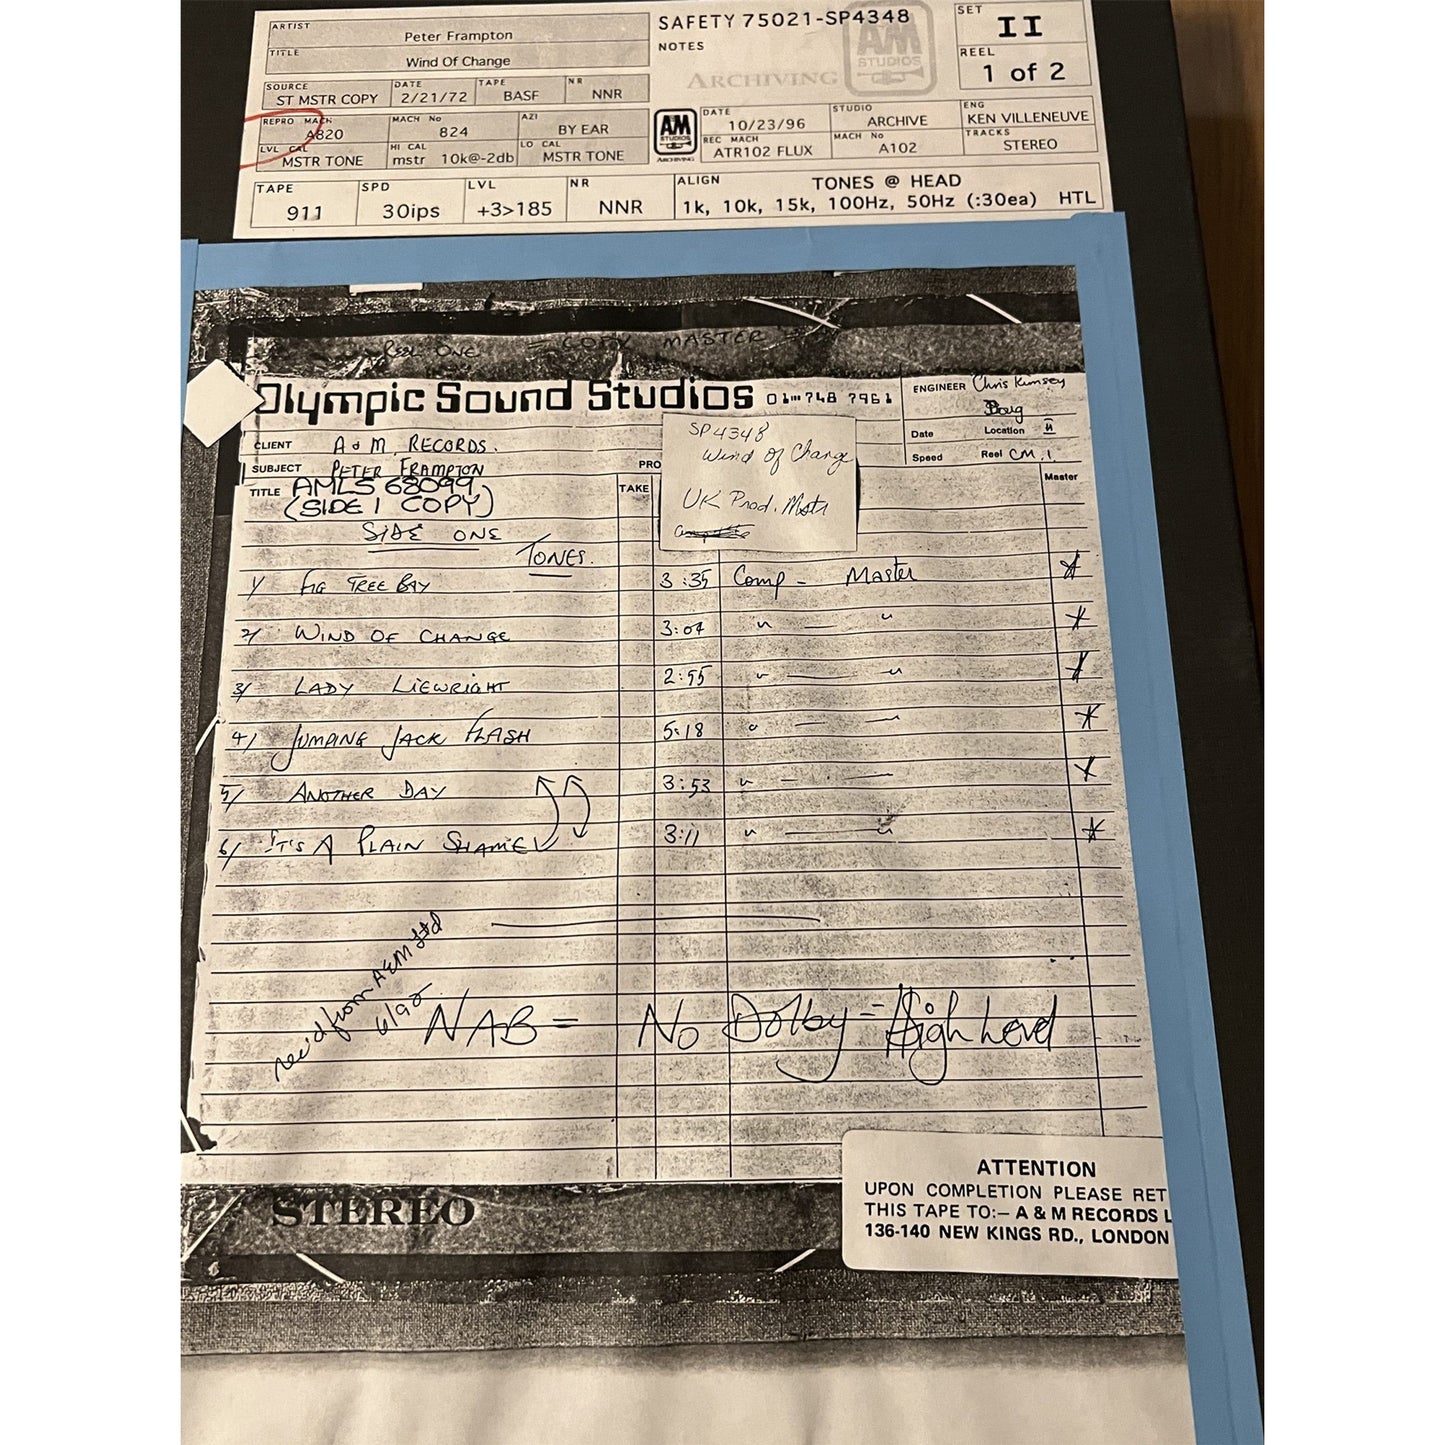 ARTIST
Peter Frampton
TITLE
Wind Of Change
SAFETY 75021-SP4348
NOTES
ARCHIVING
AM
STUDIOS
SET
II
REEL
1 of 2
SOURCE
ST MSTR COPY
DATE
2/21/72
TAPE
BASF
NR
NNR
REPRO MACH
A820
MACH No
824
AZI
BY EAR
LVL CAL
MSTR TONE
HI CAL
mstr 10k@-2db
LO CAL
MSTR TONE
AM
STUDIOS
ARCHIVING
DATE
10/23/96
STUDIO
ARCHIVE
ENG
KEN VILLENEUVE
REC MACH
ATR102 FLUX
MACH No
A102
TRACKS
STEREO
TAPE
911
SPD
30ips
LVL
+3>185
NR
NNR
ALIGN
TONES @ HEAD
1k, 10k, 15k, 100Hz, 50Hz (:30ea) HTL
REEL ONE = COPY MASTER
Olympic Sound Studios 01-748 7961
ENGINEER Chris Kimsey
Doug
Date Location II
Speed Reel CM.1.
CLIENT A & M. RECORDS.
SUBJECT PETER FRAMPTON
PRO
TITLE AMLS 68099
(SIDE 1 COPY)
TAKE
Master
SP4348
Wind Of Change
UK Prod. Mstr
SIDE ONE
TONES.
1/ FIG TREE BAY 3:35 Comp - Master *
2/ WIND OF CHANGE 3:04 " — " *
3/ LADY LIEWRIGHT 2:55 " — " *
4/ JUMPING JACK FLASH 5:18 " — " *
5/ ANOTHER DAY 3:53 " — " *
6/ IT'S A PLAIN SHAME 3:11 " — " *
rec'd from A&M Ltd
6/90
NAB = No Dolby = High Level
STEREO
ATTENTION
UPON COMPLETION PLEASE RET
THIS TAPE TO:— A & M RECORDS L
136-140 NEW KINGS RD., LONDON